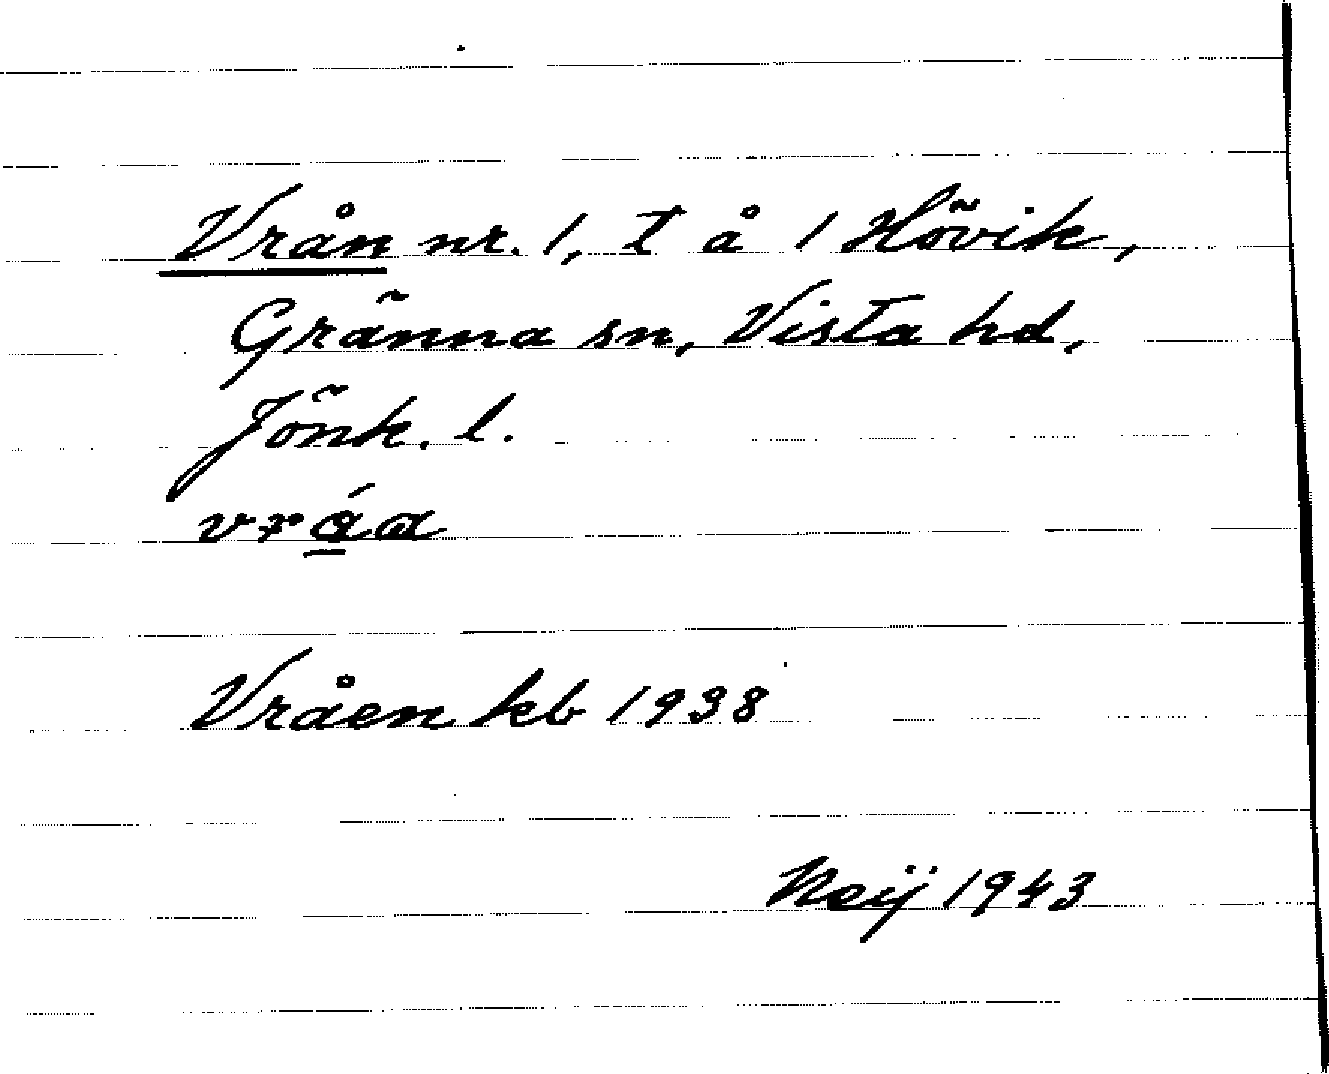 Vrån nr. 1, t å 1 Hövik,
Gränna sn, Vista hd,
Jönk. l.
vrá̱a
Vråen kb 1938
Neij 1943